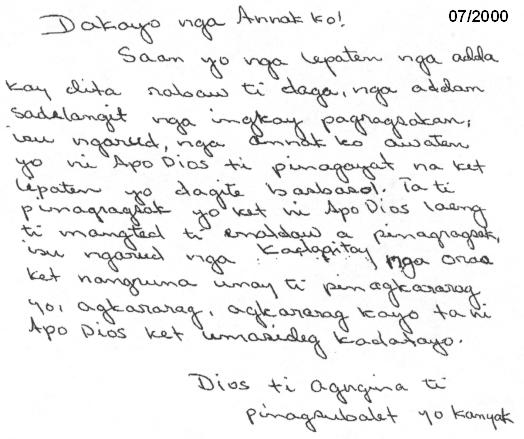 07/2000
Dakayo nga Annak ko!
Saan yo nga lepaten nga adda
kay dita rabaw ti daga, nga addam
sadelangit nga ingkay pagragsakan,
isu ngarud, nga annak ko awaten
yo ni Apo Dios ti pinagayat na ket
lepaten yo dagite barbarol. Ta ti
pinagragsak yo ket ni Apo Dios laeng
ti mangted ti enaldaw a pinagragsak,
isu ngarud nga Kadagitay nga oras
ket nanguna unay ti pinagkararag
yo, agkararag, agkararag kayo ta ni
Apo Dios ket umasideg kadatayo.
Dios ti agngina ti
pinagsubalet yo kanyak